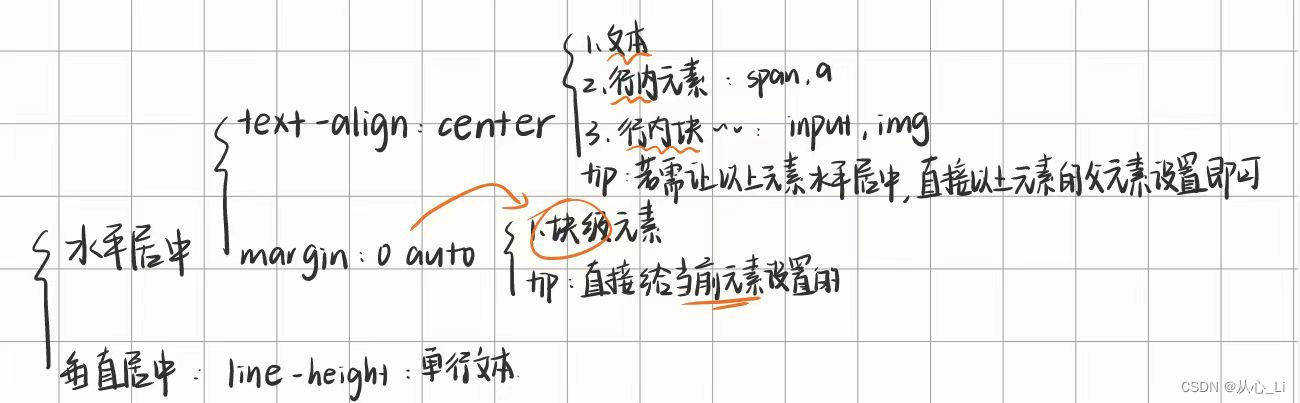 1.文本
2.行内元素：span.a
text-align：center
3.行内块~~：input，img
tip：若需让以上元素水平居中，直接以上元素的父元素设置即可
1.块级元素
水平居中
margin：0 auto
tip：直接给当前元素设置的
垂直居中：line-height：单行文本
CSDN @从心_Li